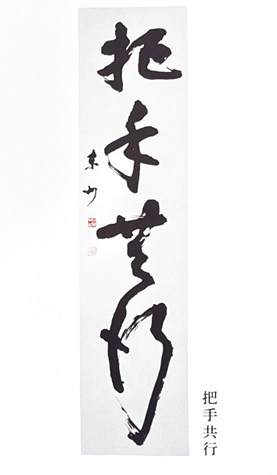 把手共行
東州
把手共行